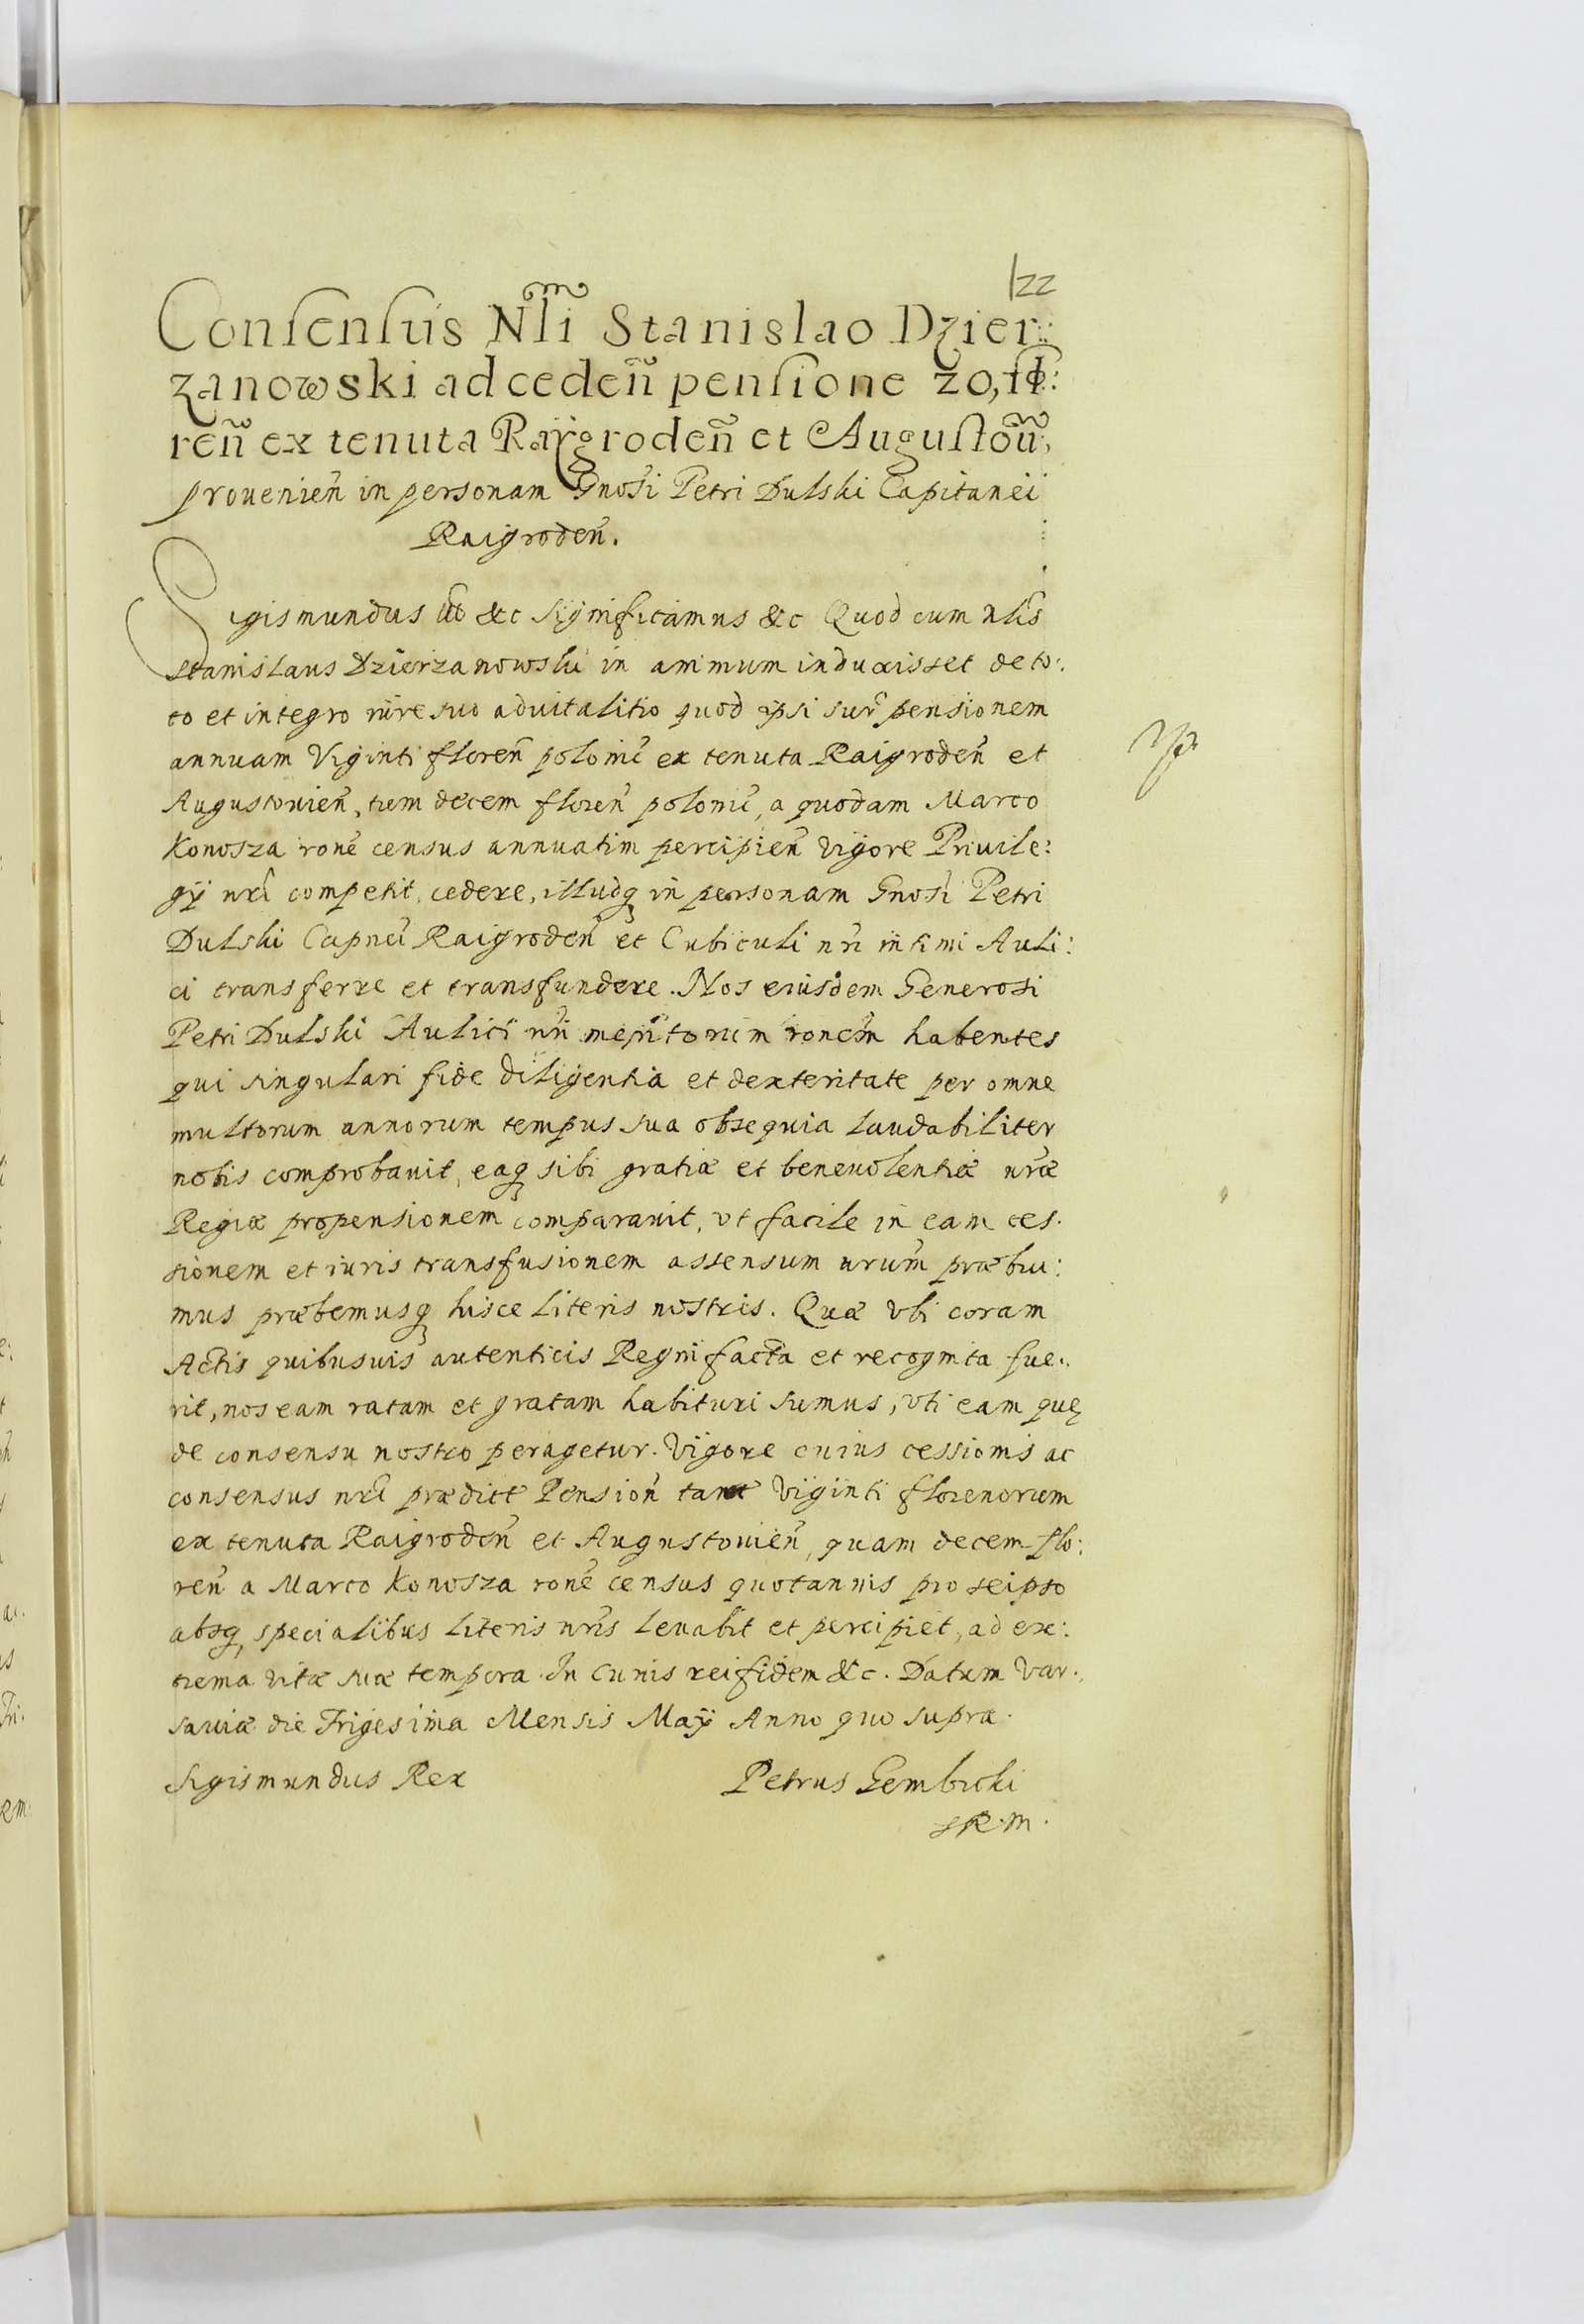 122
Consensus Nli͠ Stanislao Dzier:
zanowski ad ceden̄ pensione 20, flo:
ren̄ ex tenuta Raygroden̄ et Augustoūn,
prouenien̄ in personam Gnosi Petri Dulski Capitanei
Raigroden̄.
Sigismundus &c significamus &c Quod cum Nlis
Stanislaus Dzierzanowski in animum induxisset de to:
to et integro iure suo aduitalitio quod ipsi sup̄ pensionem
annuam Viginti floren̄ polonic̄ ex tenuta Raigroden̄ et
Augustouien̄, tum decem floren̄ polonic̄, a quodam Marco
Konosza rone census annuatim percipien̄ vigore Priuile:
gÿ nri competit, cedere, illudq in personam Gnosi Petri
Dulski Capnei Raigroden̄ et Cubiculi nri intimi Auli:
ci transferre et transfundere. Nos eiusdem Generosi
Petri Dulski Aulici nri meritorum ronem habentes
qui singulari fide diligentia et dexteritate per omne
multorum annorum tempus sua obsequia laudabiliter
nobis comprobauit, eaq sibi gratiæ et beneuolentiæ nræ
Regiæ propensionem comparauit, vt facile in eam ces.
sionem et iuris transfusionem assensum nrum præbui:
mus præbemusq hisce literis nostris. Quæ vbi coram
Actis quibusuis autenticis Regni facta et recognita fue:
rit, nos eam ratam et gratam habituri sumus, vti eam quę
de consensu nostro peragetur. Vigore cuius cessionis ac
consensus nri prædict Pension̄ tam Viginti florenorum
ex tenuta Raigroden̄ et Augustouien̄, quam decem flo:
ren̄ a Marco Konosza rone census quotannis pro seipso
absq specialibus literis nris leuabit et percipiet, ad ex:
trema vitæ suæ tempora. In cuius rei fidem &c. Datum Var:
sauiæ die Trigesima Mensis Maÿ Anno quo supra.
Sigismundus Rex Petrus Gembicki
S R. M.